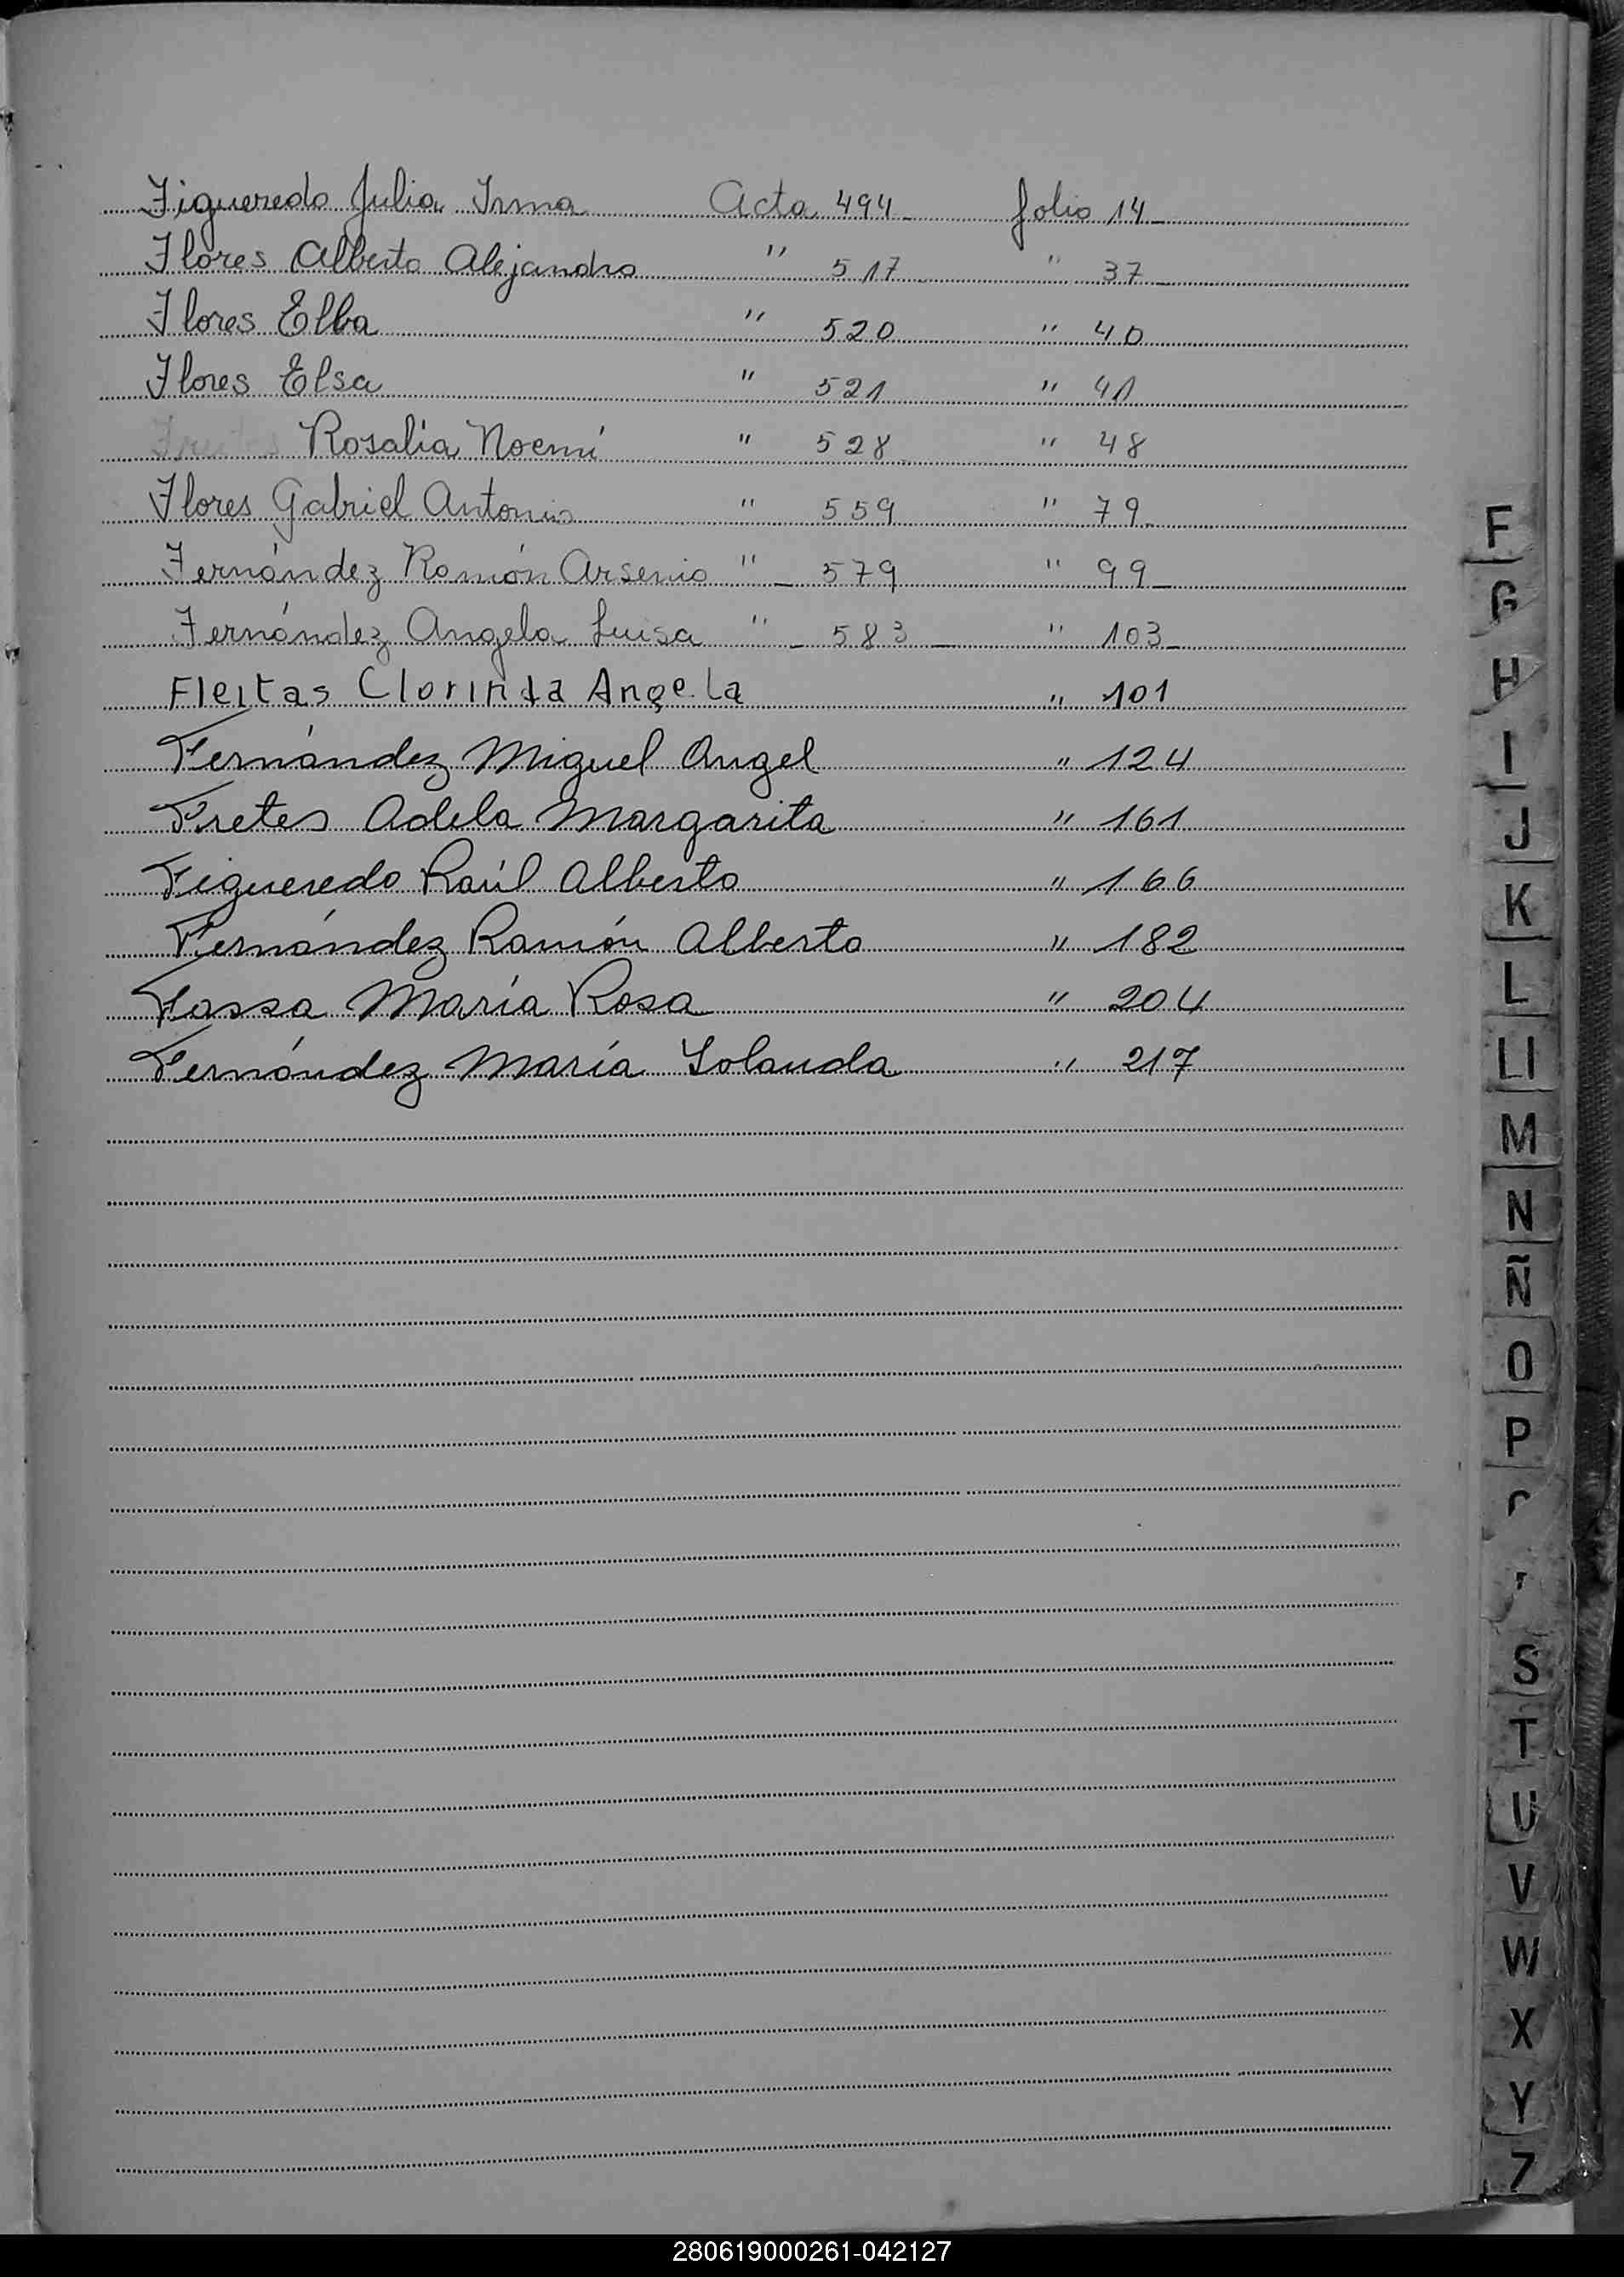 Figueredo Julia Irma Acta 494 folio 14
Flores Alberto Alejandro " 517 " 37
Flores Elba " 520 " 40
Flores Elsa " 521 " 41
Rosalia Noemí " 528 " 48
Flores Gabriel Antonio " 559 " 79
Fernández Ramón Arsenio " 579 " 99
Fernández Angela Luisa " 583 " 103
Fleitas Clorinda Angela " 101
Fernández Miguel Angel " 124
Fretes Adela Margarita " 161
Figueredo Raúl Alberto " 166
Fernández Ramón Alberto " 182
Fassa María Rosa " 204
Fernández María Yolanda " 217
F
G
H
I
J
K
L
Ll
M
N
Ñ
O
P
S
T
U
V
W
X
Y
Z
280619000261-042127